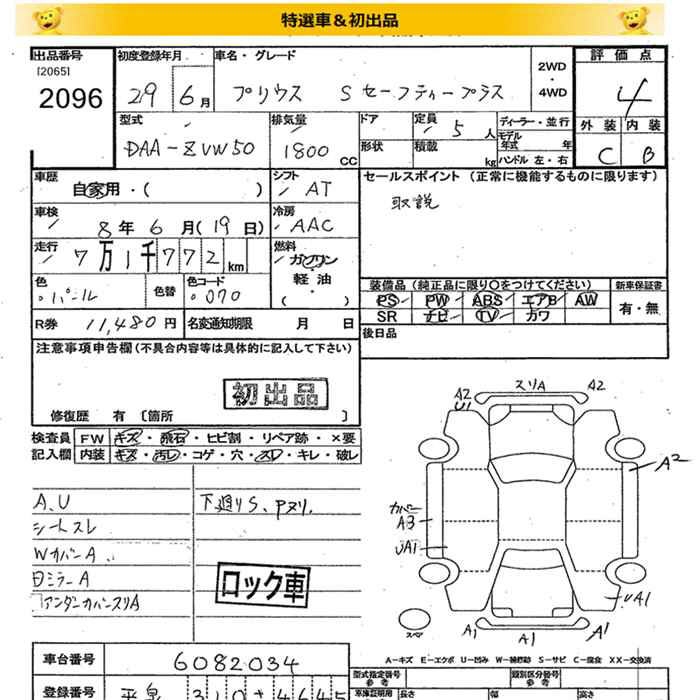 特選車＆初出品
出品番号 初度登録年月 車名・グレード 2WD・4WD 評価点
[2065]
2096 29 6月 プリウス Sセーフティープラス 4
型式 排気量 ドア 定員 5人 ディーラー・並行 外装 内装
DAA-ZVW50 1800CC 形状 積載 kg モデル年式 年 ハンドル 左・右 C B
車歴 自家用・( ) シフト AT セールスポイント (正常に機能するものに限ります)
車検 8年6月(19日) 冷房 AAC 取説
走行 7万1千772km 燃料 ガソリン・軽油 ( )
色 パール 色替 色コード 070 装備品 (純正品に限り〇をつけてください) 新車保証書
PS PW ABS エアB AW 有・無
R券 11,480円 名変通知期限 月 日 SR ナビ TV カワ
注意事項申告欄(不具合内容等は具体的に記入して下さい) 後日品
初出品
修復歴 有 〔箇所 〕
検査員 FW キズ・飛石・ヒビ割・リペア跡・×要
記入欄 内装 キズ・汚レ・コゲ・穴・スレ・キレ・破レ
A2 スリA A2
U1
A2
カバー
A3
UA1
UA1
スペア
A1 A1 A1
A.U 下廻りS、Pヌリ.
シートスレ
WカバーA
ロック車
アンダーカバースリA
A－キズ E－エクボ U－凹み W－補修跡 S－サビ C－腐食 XX－交換済
車台番号 6082034 型式指定番号 参考 類別区分番号 参考
登録番号 車庫証明用 参考 長さ 幅 高さ